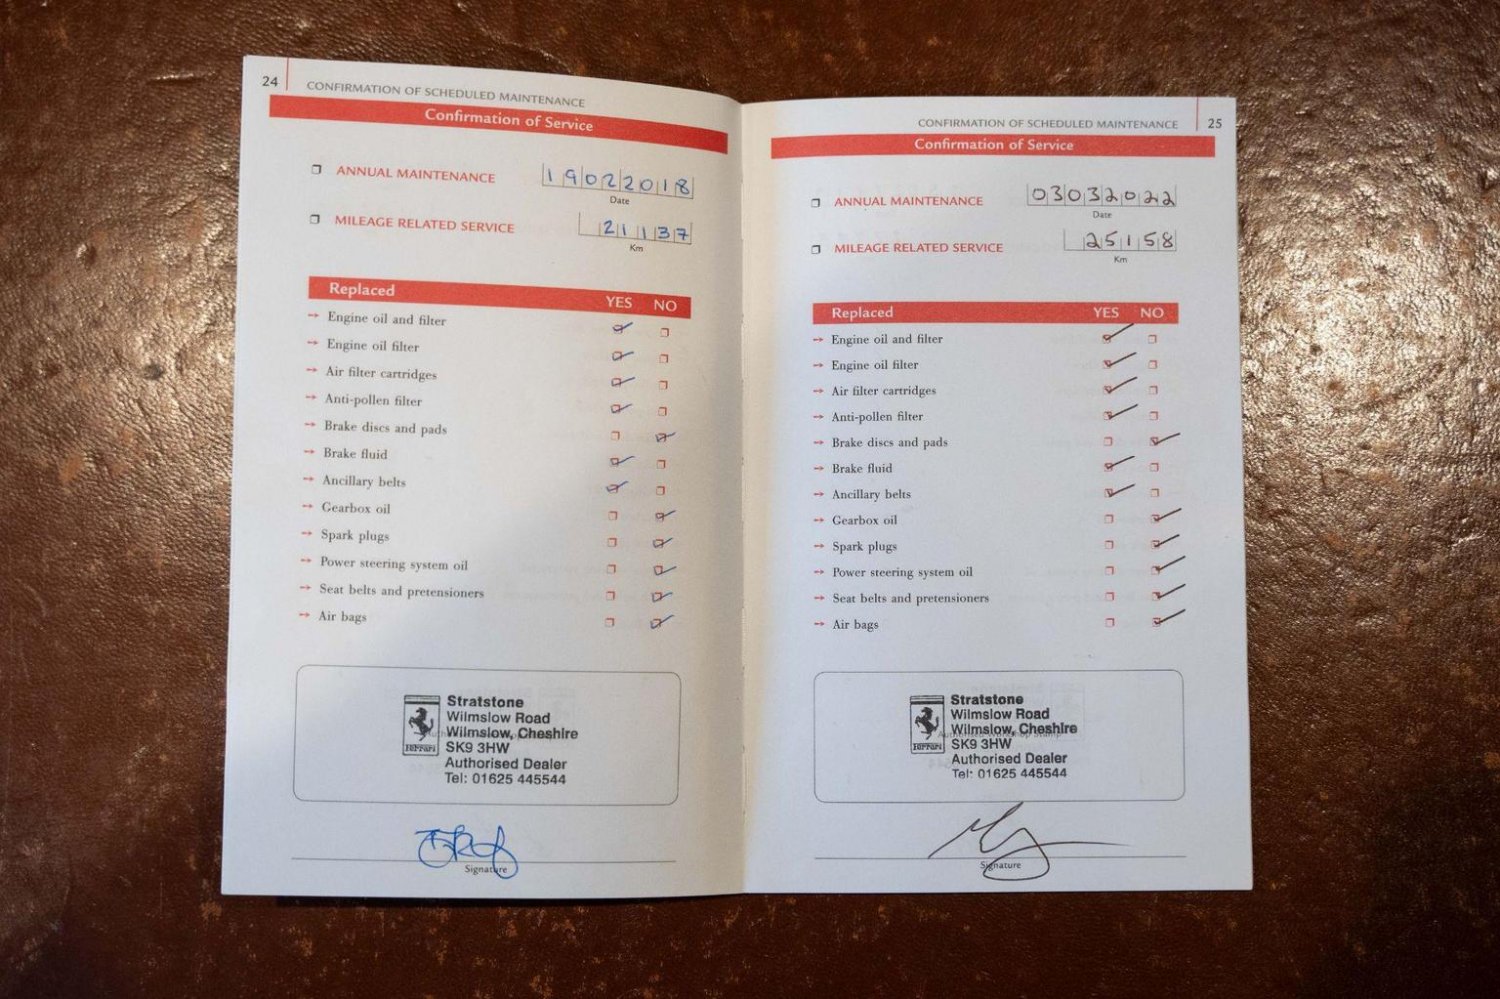 24 CONFIRMATION OF SCHEDULED MAINTENANCE
Confirmation of Service
ANNUAL MAINTENANCE 19022018
Date
MILEAGE RELATED SERVICE 21137
Km
Replaced YES NO
Engine oil and filter
Engine oil filter
Air filter cartridges
Anti-pollen filter
Brake discs and pads
Brake fluid
Ancillary belts
Gearbox oil
Spark plugs
Power steering system oil
Seat belts and pretensioners
Air bags
Ferrari
Stratstone
Wilmslow Road
Wilmslow, Cheshire
SK9 3HW
Authorised Dealer
Tel: 01625 445544
Signature
CONFIRMATION OF SCHEDULED MAINTENANCE 25
Confirmation of Service
ANNUAL MAINTENANCE 03032022
Date
MILEAGE RELATED SERVICE 25158
Km
Replaced YES NO
Engine oil and filter
Engine oil filter
Air filter cartridges
Anti-pollen filter
Brake discs and pads
Brake fluid
Ancillary belts
Gearbox oil
Spark plugs
Power steering system oil
Seat belts and pretensioners
Air bags
Ferrari
Stratstone
Wilmslow Road
Wilmslow, Cheshire
SK9 3HW
Authorised Dealer
Tel: 01625 445544
Signature